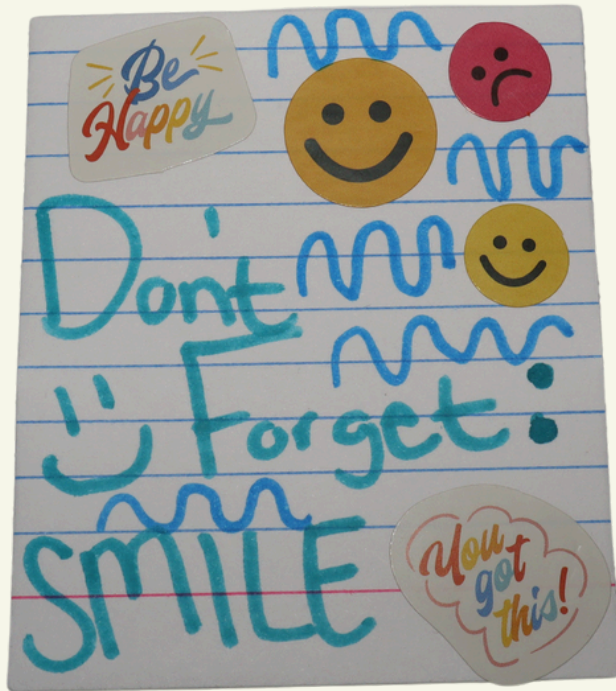 Be
Happy
Don't
Forget:
SMILE
You
got
this!